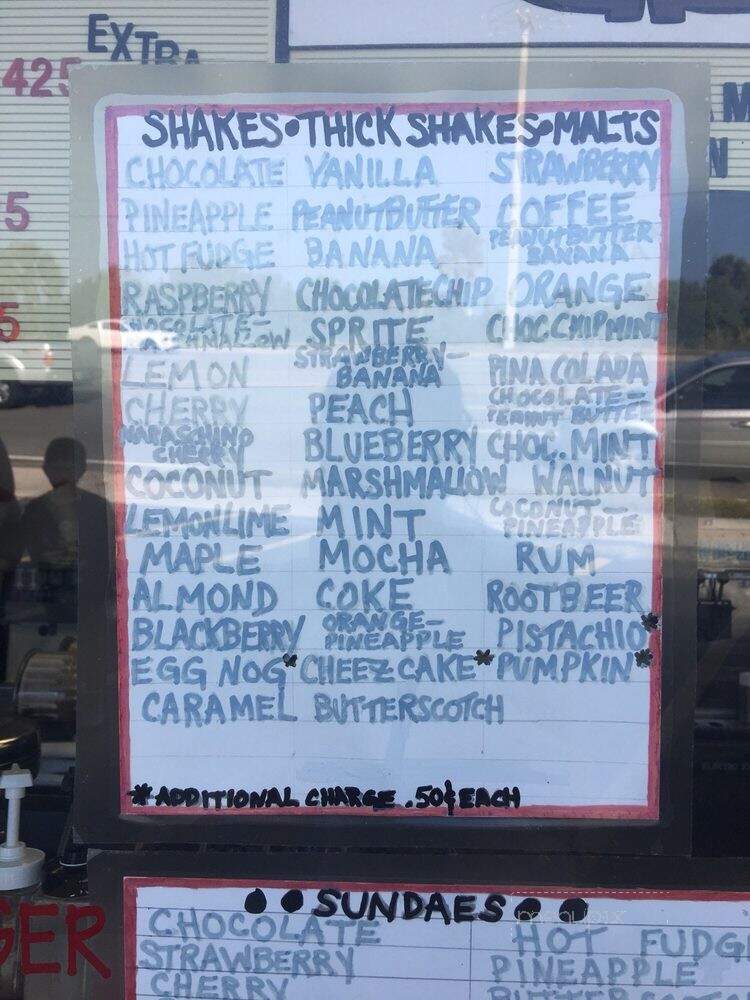 EXTRA
425
5
5
M
N
SHAKES•THICK SHAKES•MALTS
CHOCOLATE VANILLA STRAWBERRY
PINEAPPLE PEANUTBUTTER COFFEE
HOT FUDGE BANANA PEANUTBUTTER BANANA
RASPBERRY CHOCOLATECHIP ORANGE
CHOCOLATE-MARSHMALLOW SPRITE CHOCCHIPMINT
LEMON STRAWBERRY-BANANA PINA COLADA
CHERRY PEACH CHOCOLATE-PEANUT BUTTER
MARASCHINO CHERRY BLUEBERRY CHOC. MINT
COCONUT MARSHMALLOW WALNUT
LEMONLIME MINT COCONUT-PINEAPPLE
MAPLE MOCHA RUM
ALMOND COKE ROOTBEER
BLACKBERRY ORANGE-PINEAPPLE PISTACHIO*
EGG NOG* CHEEZCAKE* PUMPKIN*
CARAMEL BUTTERSCOTCH
* ADDITIONAL CHARGE .50¢ EACH
GER
•• SUNDAES ••
CHOCOLATE HOT FUDG
STRAWBERRY PINEAPPLE
CHERRY